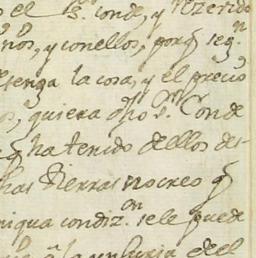 el S.r conde, y rezeuido
nos, y conellos, porq seg.n
tenga la cosa, y el precio
os, quiera dho S.r Conde
q ha tenido dellos des-
has tierras no creo q
niqua condiz.on se le puede
la del